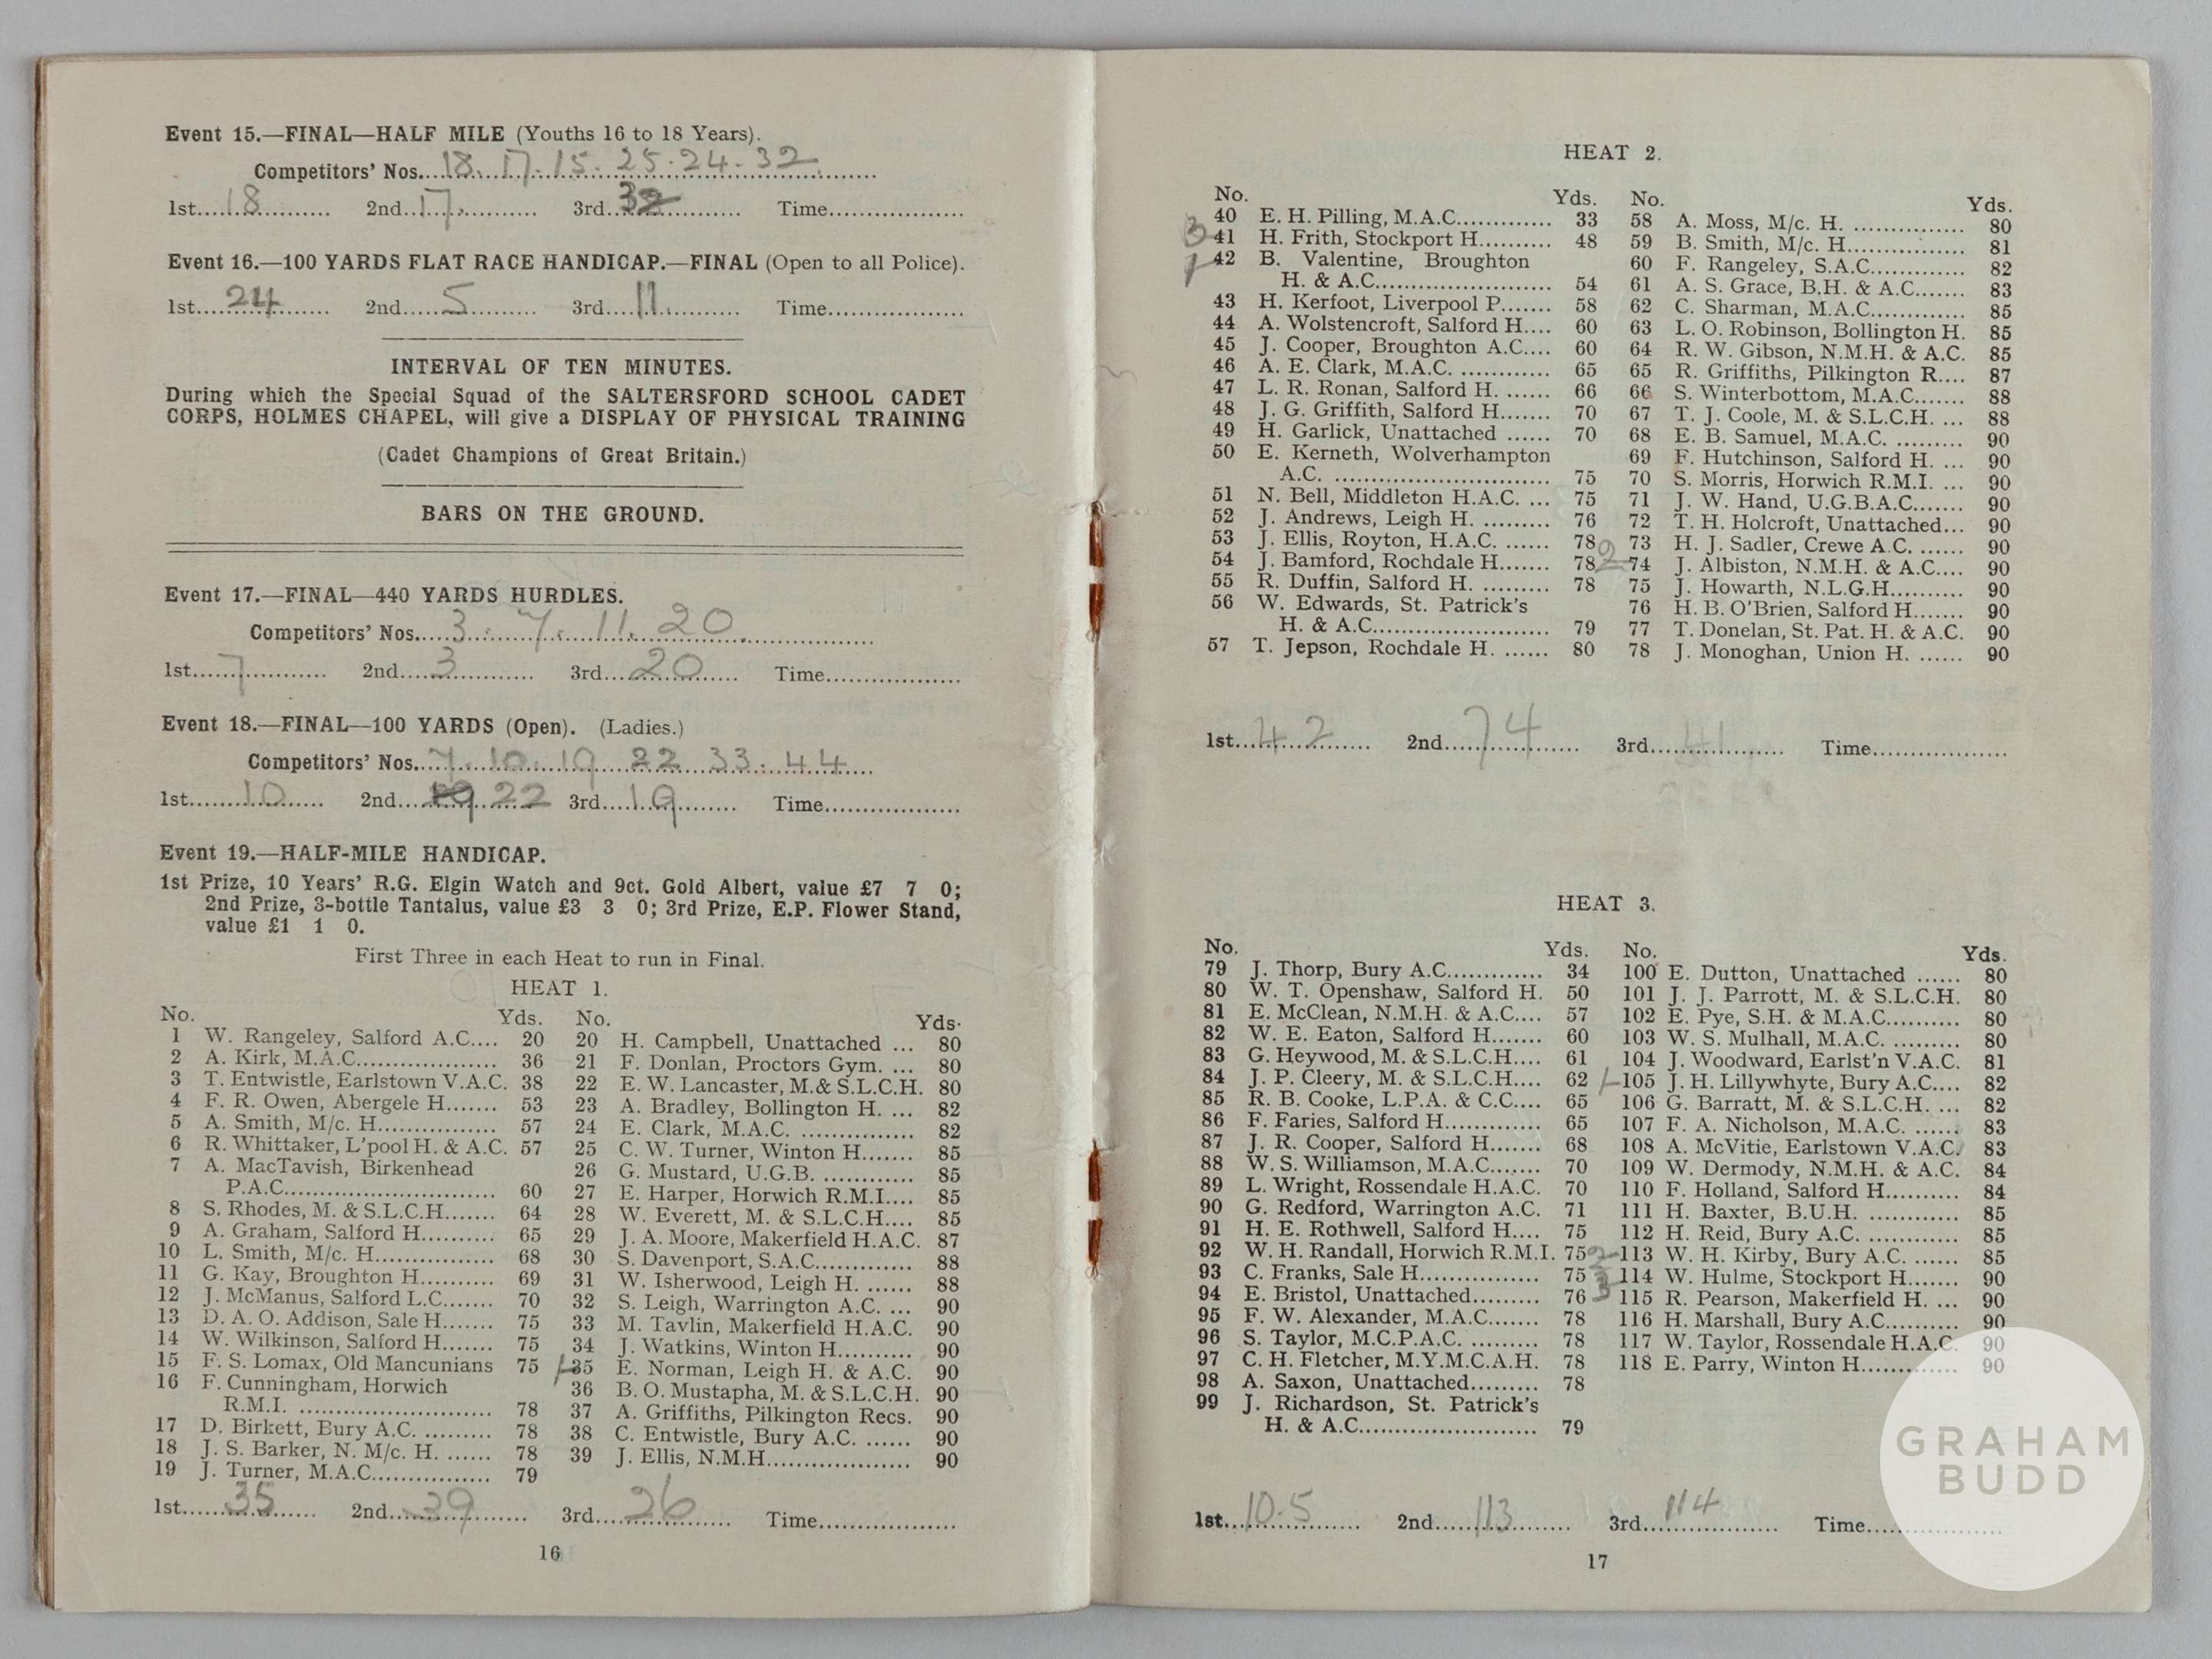 Event 15.—FINAL—HALF MILE (Youths 16 to 18 Years).
Competitors' Nos....18. 17. 15. 25. 24. 32
1st.....18.......... 2nd..17............ 3rd..32.......... Time..................
Event 16.—100 YARDS FLAT RACE HANDICAP.—FINAL (Open to all Police).
1st....24....... 2nd.....5......... 3rd....11.......... Time..................
INTERVAL OF TEN MINUTES.
During which the Special Squad of the SALTERSFORD SCHOOL CADET
CORPS, HOLMES CHAPEL, will give a DISPLAY OF PHYSICAL TRAINING
(Cadet Champions of Great Britain.)
BARS ON THE GROUND.
Event 17.—FINAL—440 YARDS HURDLES.
Competitors' Nos.....3. 7. 11. 20.
1st.....7............ 2nd.....3............ 3rd....20....... Time..................
Event 18.—FINAL—100 YARDS (Open). (Ladies.)
Competitors' Nos...7. 10. 19 22 33. 44
1st........10...... 2nd....22 3rd....19........ Time..................
Event 19.—HALF-MILE HANDICAP.
1st Prize, 10 Years' R.G. Elgin Watch and 9ct. Gold Albert, value £7 7 0;
2nd Prize, 3-bottle Tantalus, value £3 3 0; 3rd Prize, E.P. Flower Stand,
value £1 1 0.
First Three in each Heat to run in Final.
HEAT 1.
No. Yds.
1 W. Rangeley, Salford A.C.... 20
2 A. Kirk, M.A.C................... 36
3 T. Entwistle, Earlstown V.A.C. 38
4 F. R. Owen, Abergele H....... 53
5 A. Smith, M/c. H................ 57
6 R. Whittaker, L'pool H. & A.C. 57
7 A. MacTavish, Birkenhead
P.A.C............................ 60
8 S. Rhodes, M. & S.L.C.H....... 64
9 A. Graham, Salford H.......... 65
10 L. Smith, M/c. H................ 68
11 G. Kay, Broughton H.......... 69
12 J. McManus, Salford L.C....... 70
13 D. A. O. Addison, Sale H....... 75
14 W. Wilkinson, Salford H....... 75
15 F. S. Lomax, Old Mancunians 75
16 F. Cunningham, Horwich
R.M.I. .......................... 78
17 D. Birkett, Bury A.C. ......... 78
18 J. S. Barker, N. M/c. H. ...... 78
19 J. Turner, M.A.C................ 79
No. Yds.
20 H. Campbell, Unattached ... 80
21 F. Donlan, Proctors Gym. ... 80
22 E. W. Lancaster, M.& S.L.C.H. 80
23 A. Bradley, Bollington H. ... 82
24 E. Clark, M.A.C. ............... 82
25 C. W. Turner, Winton H....... 85
26 G. Mustard, U.G.B. ............ 85
27 E. Harper, Horwich R.M.I.... 85
28 W. Everett, M. & S.L.C.H.... 85
29 J. A. Moore, Makerfield H.A.C. 87
30 S. Davenport, S.A.C............. 88
31 W. Isherwood, Leigh H. ...... 88
32 S. Leigh, Warrington A.C. ... 90
33 M. Tavlin, Makerfield H.A.C. 90
34 J. Watkins, Winton H.......... 90
1 35 E. Norman, Leigh H. & A.C. 90
36 B. O. Mustapha, M. & S.L.C.H. 90
37 A. Griffiths, Pilkington Recs. 90
38 C. Entwistle, Bury A.C. ...... 90
39 J. Ellis, N.M.H................... 90
1st.....35...... 2nd....39....... 3rd....26........ Time..................
16
HEAT 2.
No. Yds.
40 E. H. Pilling, M.A.C............ 33
3 41 H. Frith, Stockport H.......... 48
1 42 B. Valentine, Broughton
H. & A.C........................ 54
43 H. Kerfoot, Liverpool P....... 58
44 A. Wolstencroft, Salford H.... 60
45 J. Cooper, Broughton A.C.... 60
46 A. E. Clark, M.A.C. ............ 65
47 L. R. Ronan, Salford H. ...... 66
48 J. G. Griffith, Salford H....... 70
49 H. Garlick, Unattached ...... 70
50 E. Kerneth, Wolverhampton
A.C. ............................. 75
51 N. Bell, Middleton H.A.C. ... 75
52 J. Andrews, Leigh H. ......... 76
53 J. Ellis, Royton, H.A.C. ...... 78
54 J. Bamford, Rochdale H....... 78
55 R. Duffin, Salford H. ......... 78
56 W. Edwards, St. Patrick's
H. & A.C........................ 79
57 T. Jepson, Rochdale H. ...... 80
No. Yds.
58 A. Moss, M/c. H. ............... 80
59 B. Smith, M/c. H............... 81
60 F. Rangeley, S.A.C............. 82
61 A. S. Grace, B.H. & A.C....... 83
62 C. Sharman, M.A.C............. 85
63 L. O. Robinson, Bollington H. 85
64 R. W. Gibson, N.M.H. & A.C. 85
65 R. Griffiths, Pilkington R.... 87
66 S. Winterbottom, M.A.C....... 88
67 T. J. Coole, M. & S.L.C.H. ... 88
68 E. B. Samuel, M.A.C. ......... 90
69 F. Hutchinson, Salford H. ... 90
70 S. Morris, Horwich R.M.I. ... 90
71 J. W. Hand, U.G.B.A.C....... 90
72 T. H. Holcroft, Unattached... 90
73 H. J. Sadler, Crewe A.C. ...... 90
2 74 J. Albiston, N.M.H. & A.C.... 90
75 J. Howarth, N.L.G.H.......... 90
76 H. B. O'Brien, Salford H....... 90
77 T. Donelan, St. Pat. H. & A.C. 90
78 J. Monoghan, Union H. ...... 90
1st...42........ 2nd....74....... 3rd....41........ Time..................
HEAT 3.
No. Yds.
79 J. Thorp, Bury A.C............. 34
80 W. T. Openshaw, Salford H. 50
81 E. McClean, N.M.H. & A.C.... 57
82 W. E. Eaton, Salford H....... 60
83 G. Heywood, M. & S.L.C.H.... 61
84 J. P. Cleery, M. & S.L.C.H.... 62
85 R. B. Cooke, L.P.A. & C.C.... 65
86 F. Faries, Salford H............. 65
87 J. R. Cooper, Salford H....... 68
88 W. S. Williamson, M.A.C....... 70
89 L. Wright, Rossendale H.A.C. 70
90 G. Redford, Warrington A.C. 71
91 H. E. Rothwell, Salford H.... 75
92 W. H. Randall, Horwich R.M.I. 75
93 C. Franks, Sale H................ 75
94 E. Bristol, Unattached......... 76
95 F. W. Alexander, M.A.C....... 78
96 S. Taylor, M.C.P.A.C. .......... 78
97 C. H. Fletcher, M.Y.M.C.A.H. 78
98 A. Saxon, Unattached......... 78
99 J. Richardson, St. Patrick's
H. & A.C......................... 79
No. Yds.
100 E. Dutton, Unattached ...... 80
101 J. J. Parrott, M. & S.L.C.H. 80
102 E. Pye, S.H. & M.A.C.......... 80
103 W. S. Mulhall, M.A.C. ......... 80
104 J. Woodward, Earlst'n V.A.C. 81
1 105 J. H. Lillywhyte, Bury A.C.... 82
106 G. Barratt, M. & S.L.C.H. ... 82
107 F. A. Nicholson, M.A.C. ...... 83
108 A. McVitie, Earlstown V.A.C. 83
109 W. Dermody, N.M.H. & A.C. 84
110 F. Holland, Salford H.......... 84
111 H. Baxter, B.U.H. ............ 85
112 H. Reid, Bury A.C. ............ 85
2 113 W. H. Kirby, Bury A.C. ...... 85
3 114 W. Hulme, Stockport H....... 90
115 R. Pearson, Makerfield H. ... 90
116 H. Marshall, Bury A.C.......... 90
117 W. Taylor, Rossendale H.A.C. 90
118 E. Parry, Winton H............. 90
1st..105........ 2nd.....113....... 3rd....114........ Time..................
17
GRAHAM
BUDD